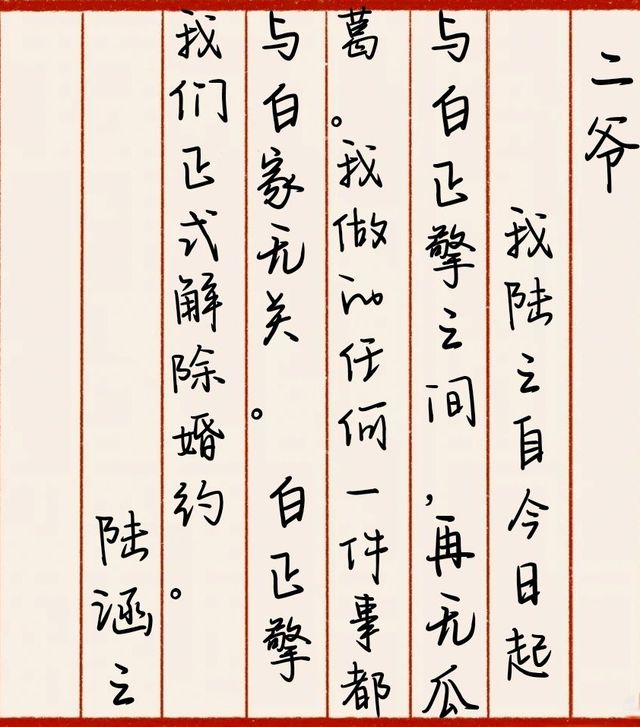 二爷
我陆之自今日起
与白正擎之间,再无瓜
葛。我做的任何一件事都
与白家无关。白正擎
我们正式解除婚约。
陆涵之